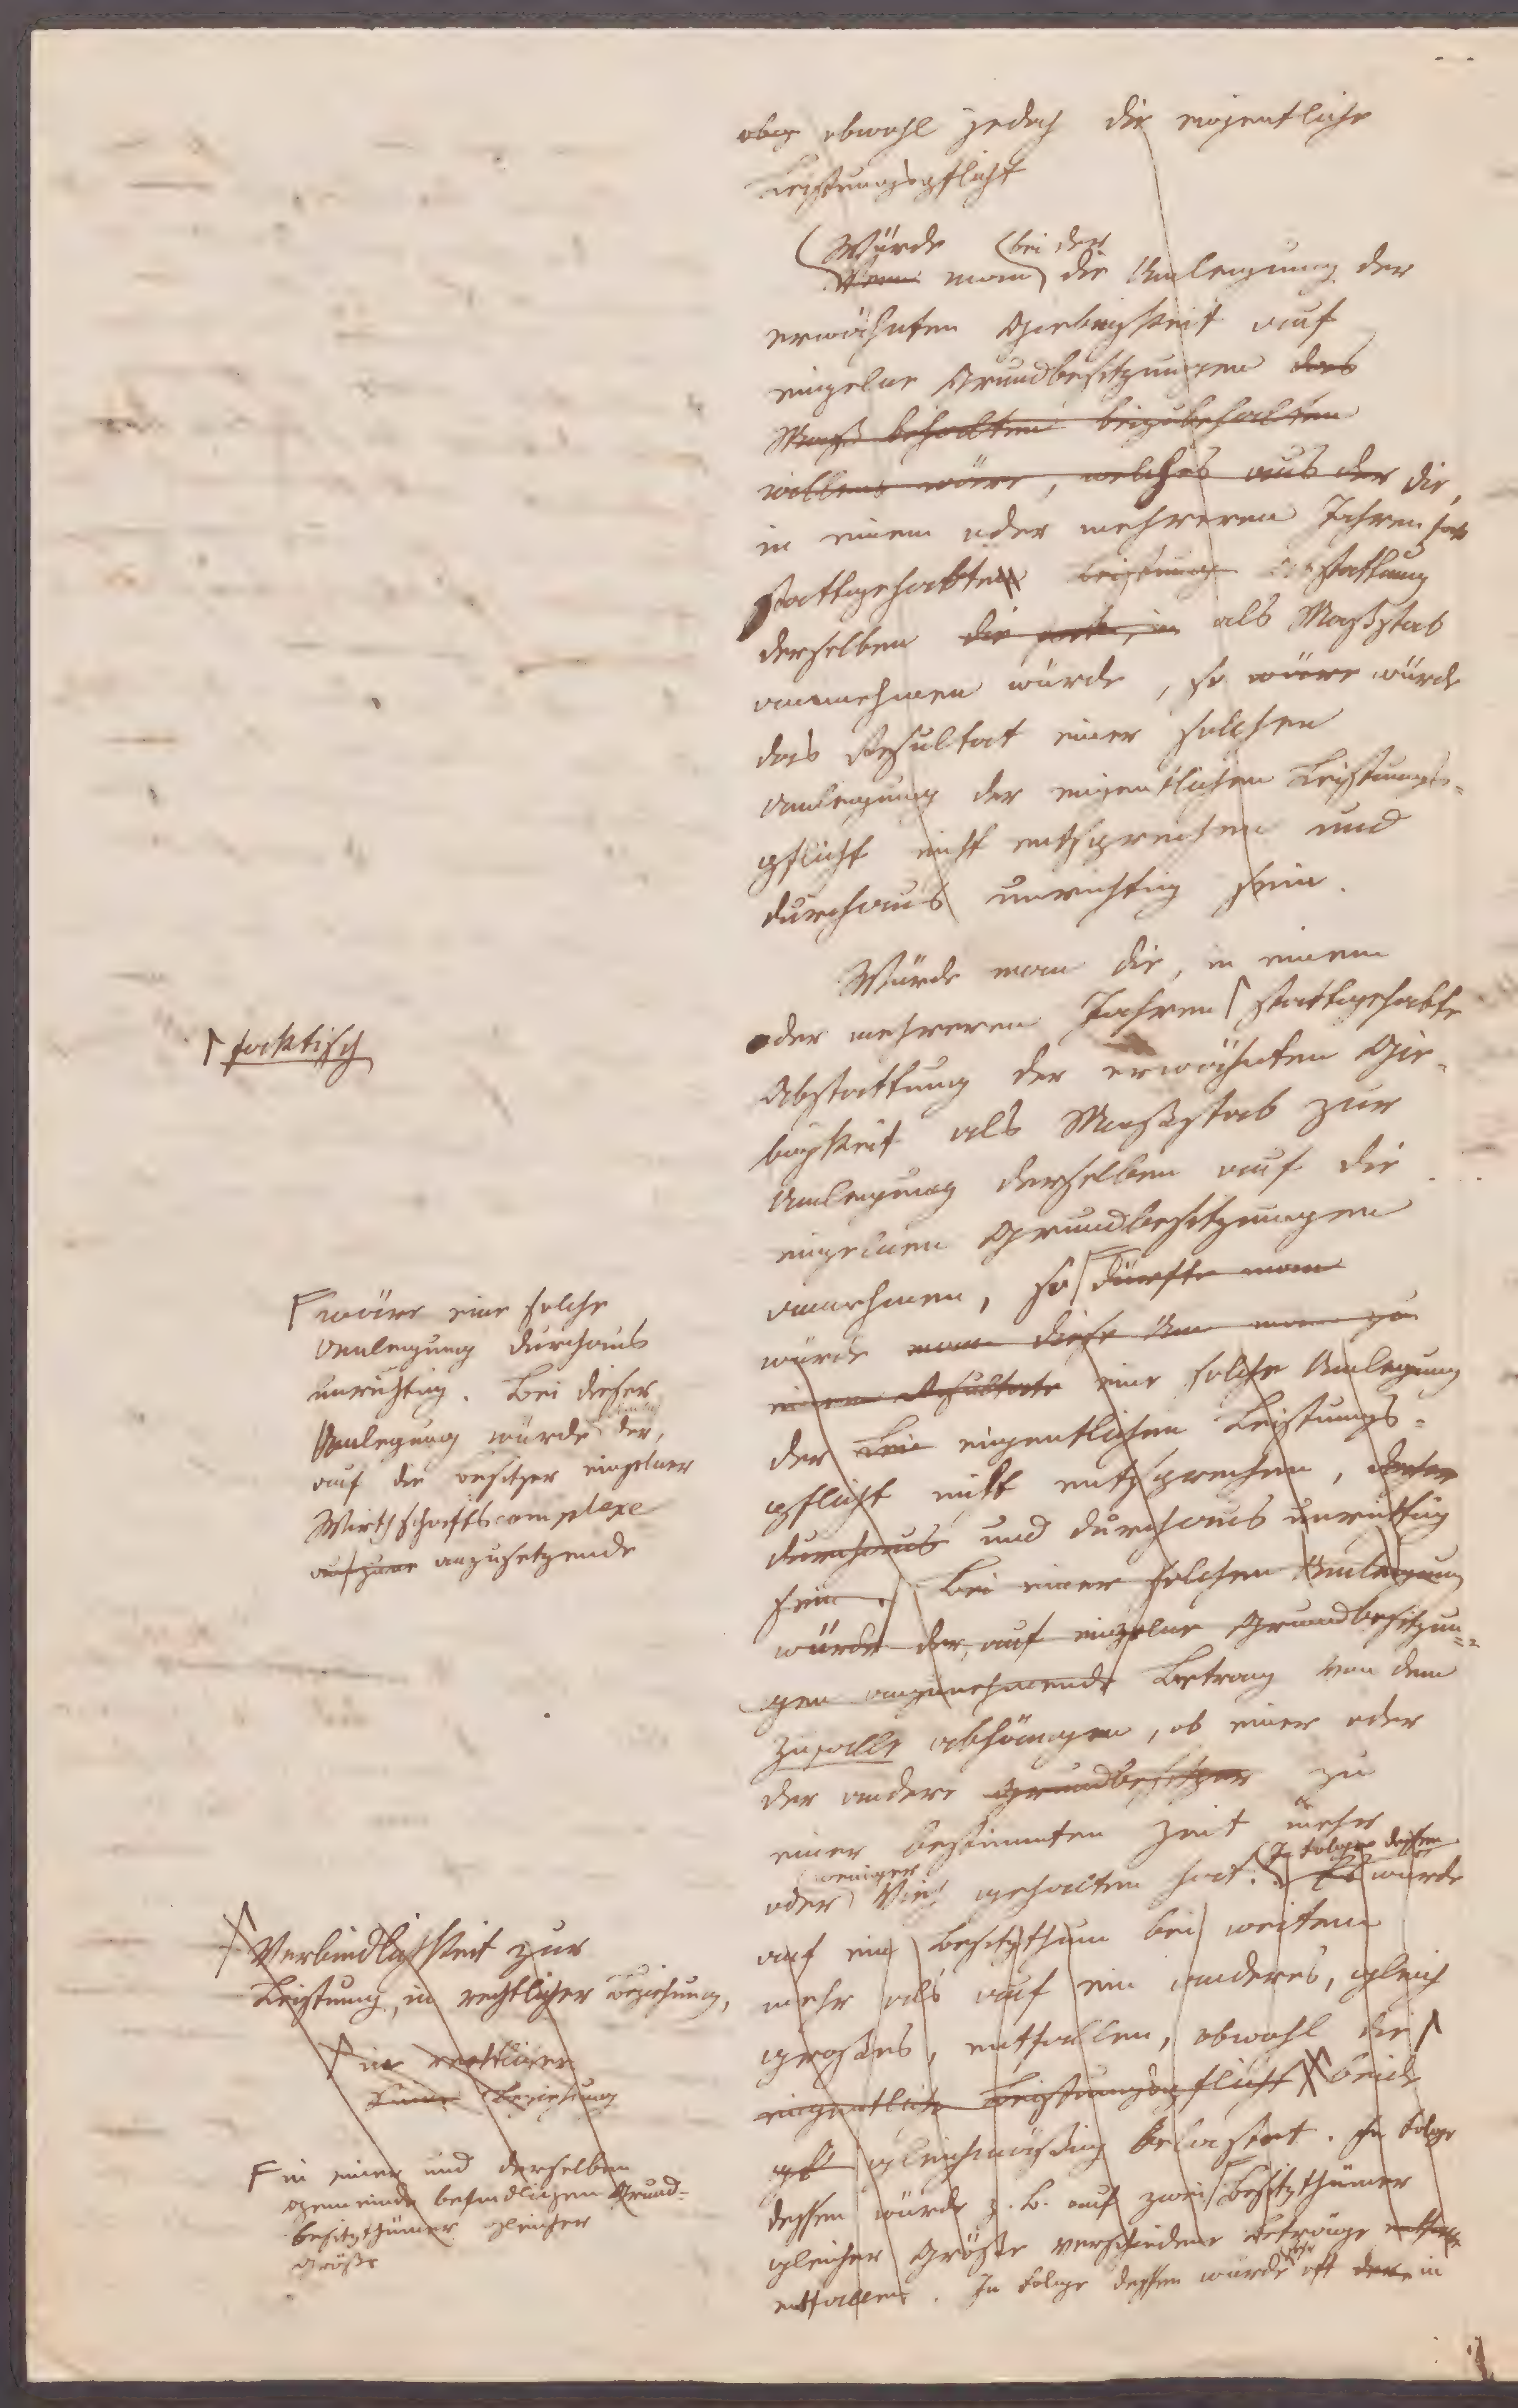 aber obwohl jedoch die eigentliche
Leistungspflicht
Würde bei der
Wenn man die Umlegung der
erwähnten Giebigkeit auf
einzelne Grundbesitzungen das
Maß behalten beizubehalten
willens wäre, welches aus der die,
in einem oder mehreren Jahren
stattgehabten Leistung Abstattung
derselben die als Maßstab
annehmen würde, so wäre würde
das Resultat einer solchen
Umlegung der eigentlichen Leistungs-
pflicht nicht entsprechen und
durchaus unrichtig sein.
Würde man die, in einem
oder mehreren Jahren stattgehabte
faktisch
Abstattung der erwähnten Gie-
bigkeit als Maßstab zur
Umlegung derselben auf die
einzelnen Grundbesitzungen
annehmen, so dürfte man
würde man diese man zu
einem Resultate eine solche Umlegung
der eigentlichen Leistungs-
pflicht nicht entsprechen,
durchaus und durchaus unrichtig
sein. Bei einer solchen Umlegung
würde der, auf einzelne Grundbesitzun-
gen anzunehmende Betrag von dem
Zufalle abhängen, ob einer oder
der andere Grundbesitzer zu
einer bestimmten Zeit mehr
weniger In Folge dessen
oder Vieh gehalten hat. Es würde
auf ein Besitzthum bei weitem
mehr als auf ein anderes, gleich
großes, entfallen, obwohl die
eigentliche Leistungspflicht beide
gleichmäßig belastet. In Folge
dessen würde z. B. auf zwei Besitzthümer
gleicher Größe verschiedene Beträge
entfallen. In Folge dessen würde sehr oft in
wäre eine solche
Umlegung durchaus
unrichtig. Bei dieser
Umlegung würde der,
auf die Besitzer einzelner
Wirthschaftscomplexe
anzusetzende
Verbindlichkeit zur
Leistung, in rechtlicher Beziehung,
in rechtlicher
Beziehung
in einer und derselben
Gemeinde befindlichen Grund-
besitzthümer gleicher
Größe